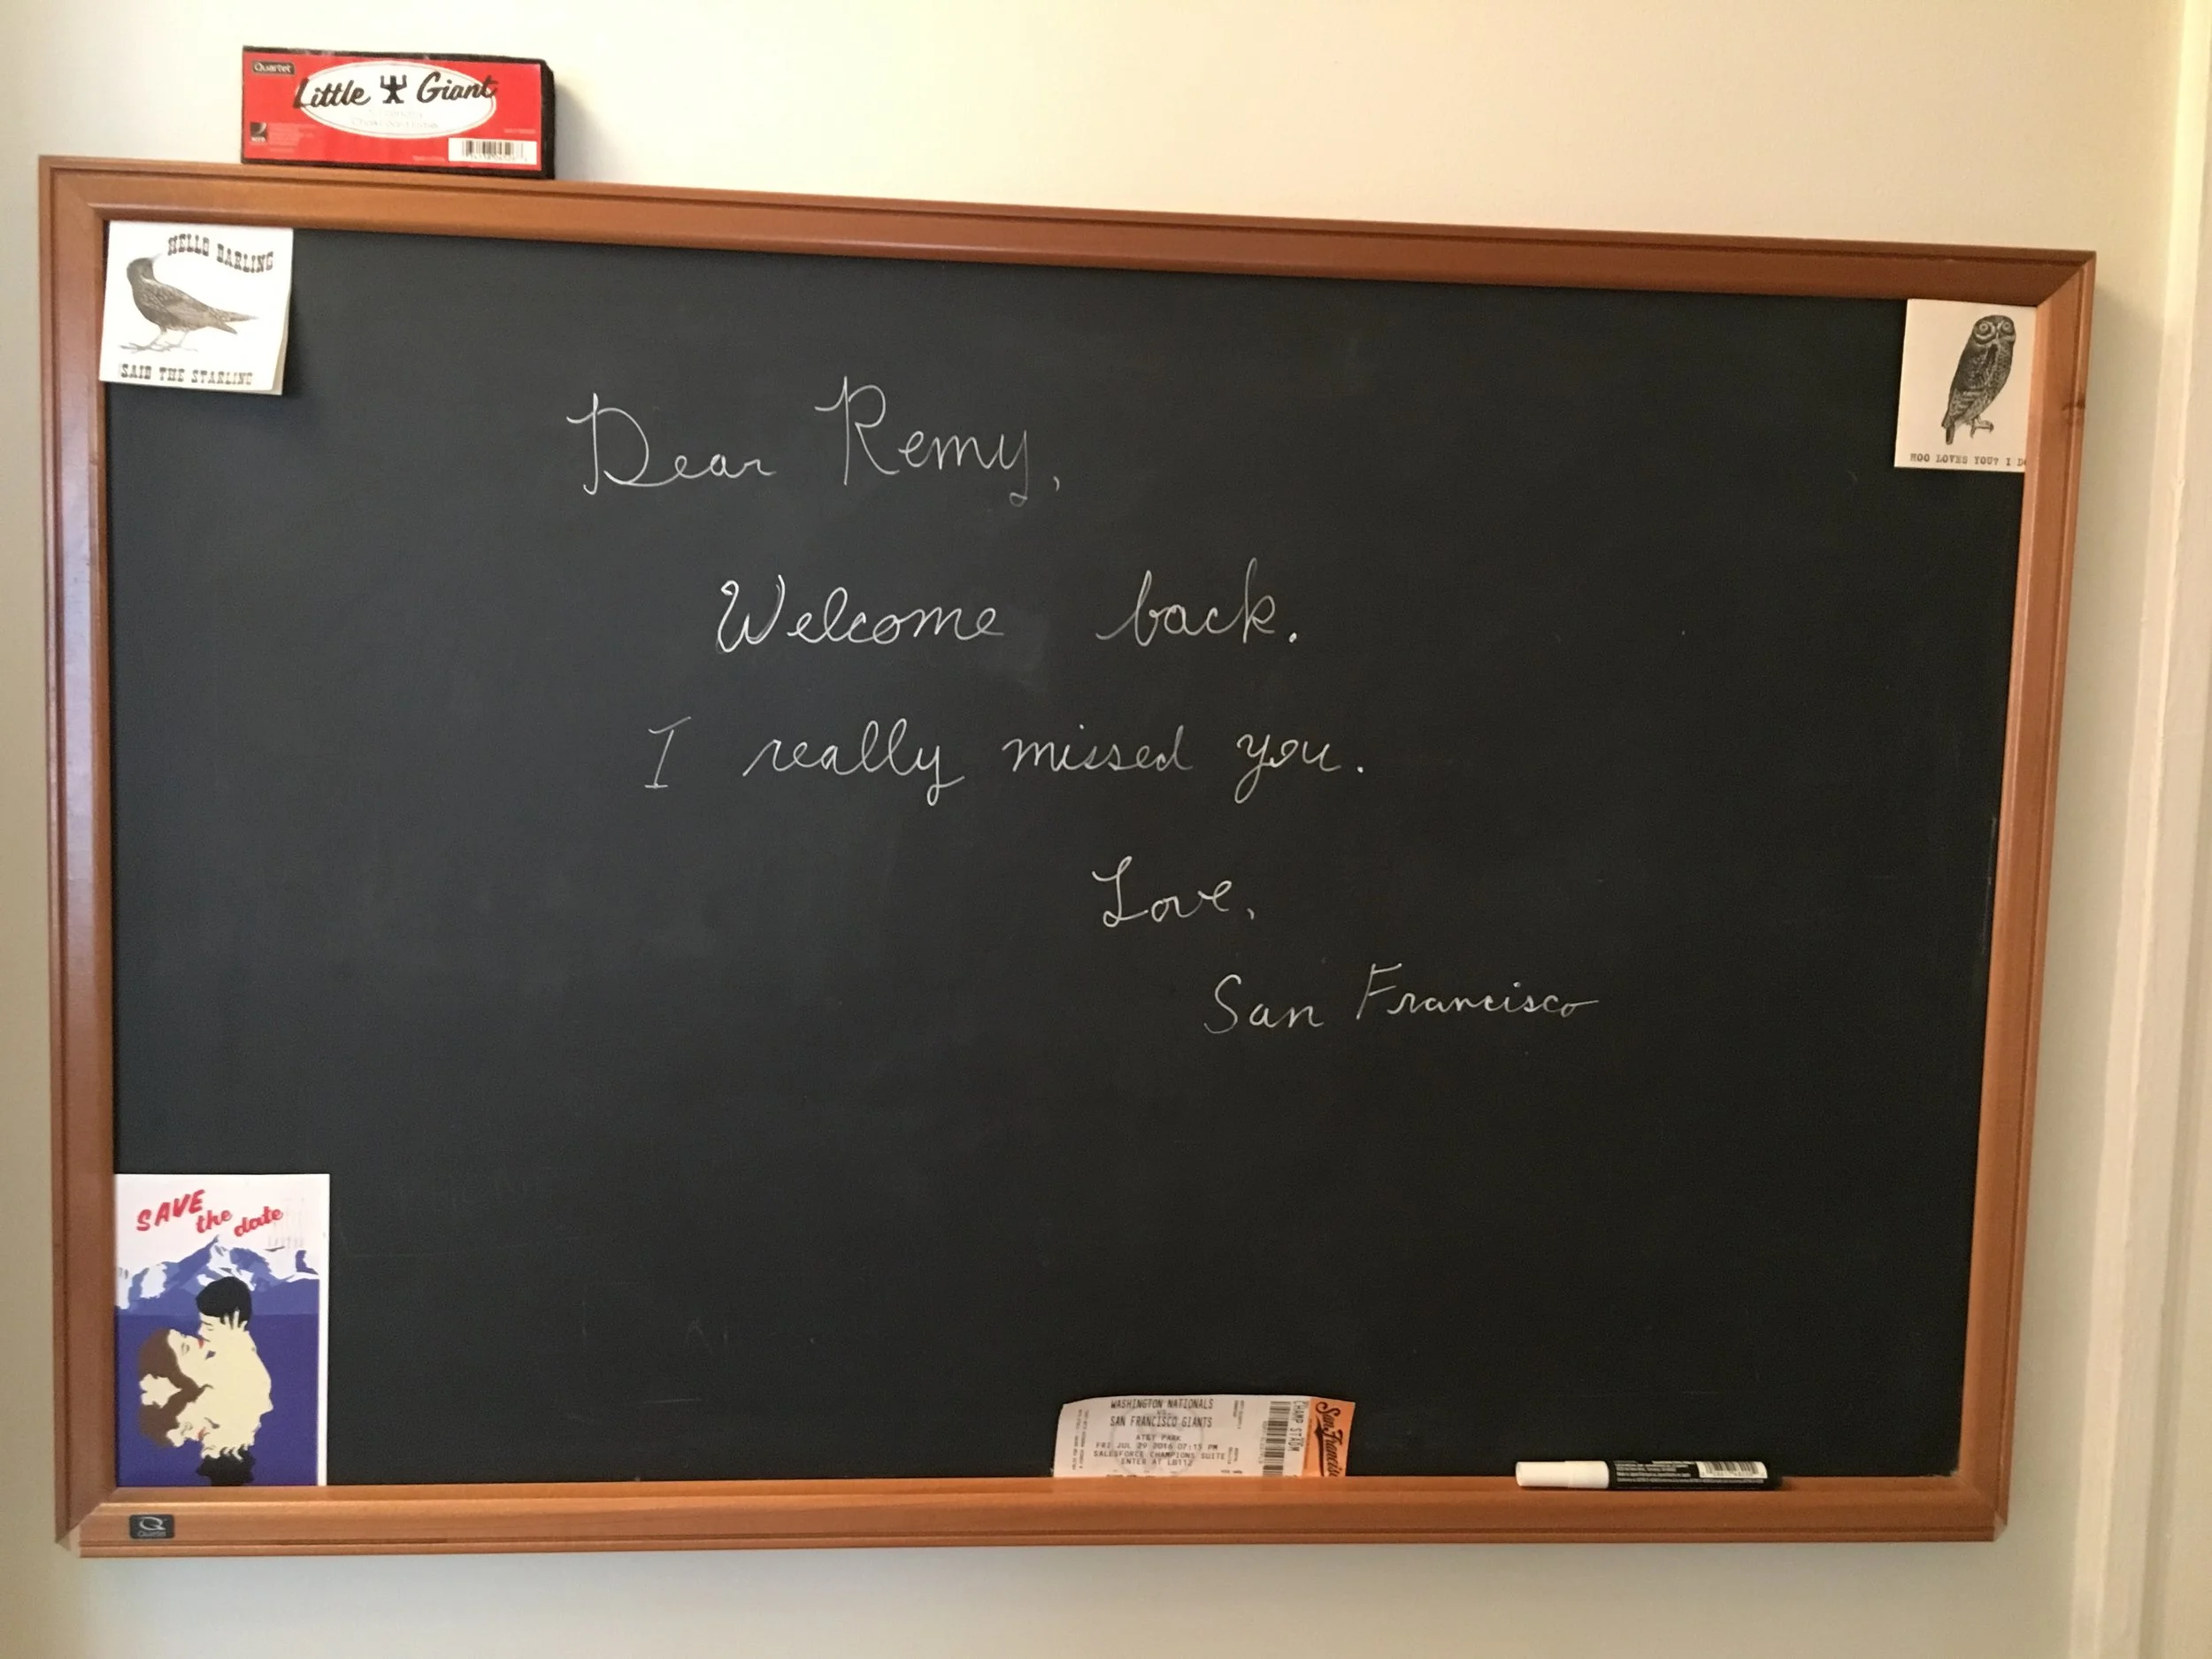 Quartet
Little Giant
HELLO DARLING
SAID THE STARLING
HOO LOVES YOU? I
Dear Remy,
Welcome back.
I really missed you.
Love,
San Francisco
SAVE the date
WASHINGTON NATIONALS
VS
SAN FRANCISCO GIANTS
AT&T PARK
FRI JUL 29 2016 07:15 PM
SALESFORCE CHAMPIONS SUITE
ENTER AT LB112
San Francisco
Quartet